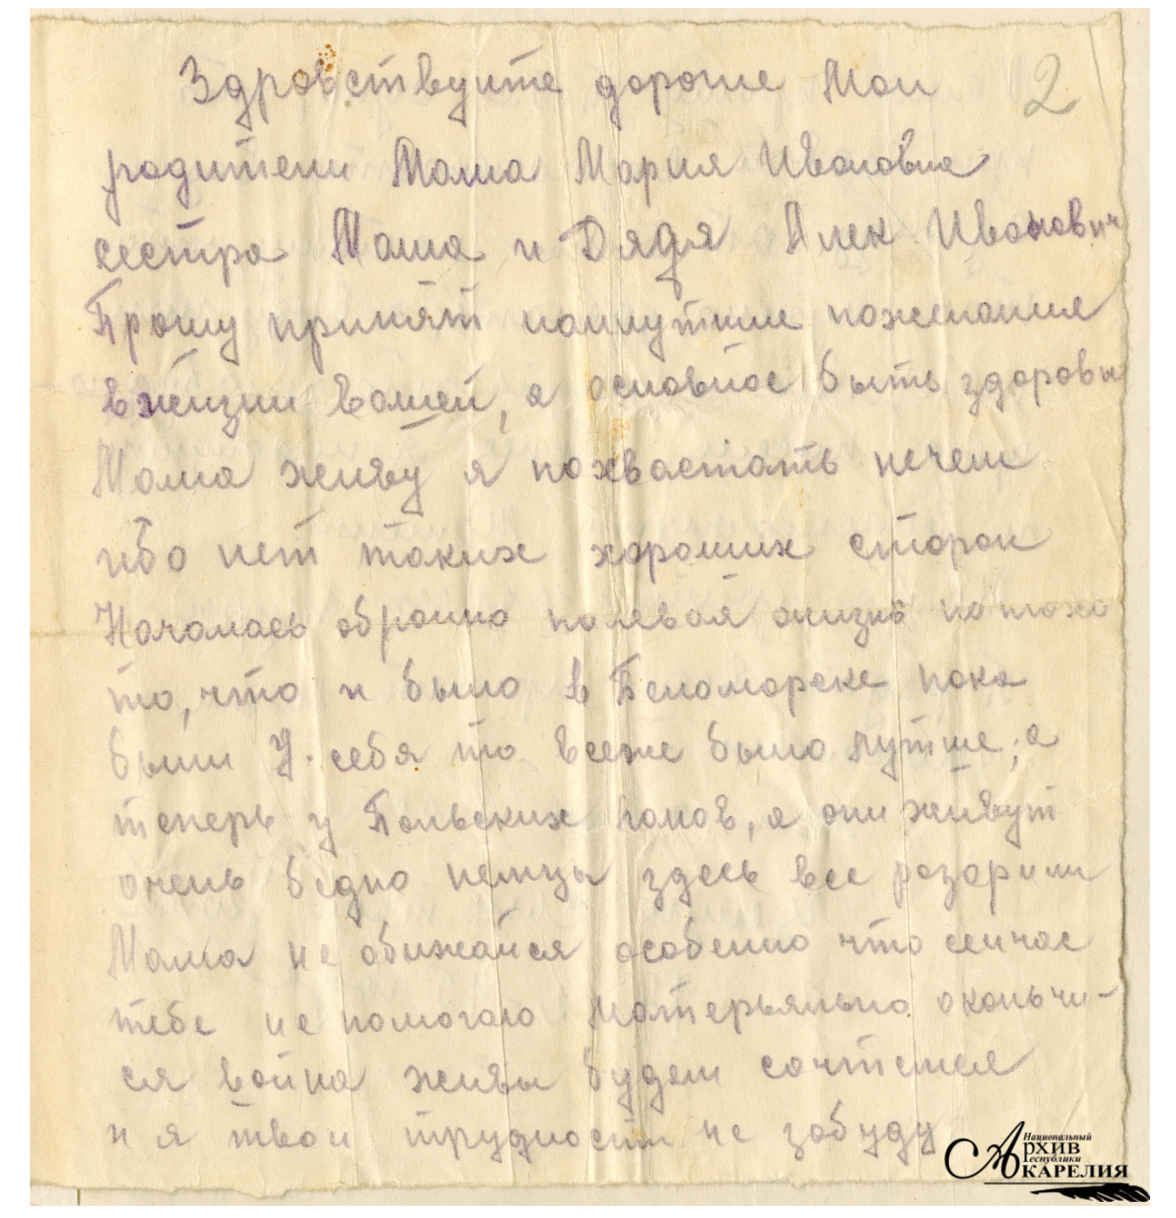 2
Здровствуите дорогие Мои
родители Мама Мария Ивановна
сестра Маша и Дядя Алек Иванович
Прошу принят наилутшие пожелания
в жизни вашей, а основное быть здоровы
Мама живу я похвастать нечем
ибо нет таких хороших сторон
Началась обратно полевая жизнь
то, что и было в Беломорске пока
были у себя то всеже было лутше, а
теперь у Польских панов, а они живут
очень бедно немцы здесь все разорили
Мама не обижайся особенно что сеичас
тебе не помогаю матерьяльно оконьчи-
ся война живы будем сочтемся
и я твои трудности не забуду
Национальный
АРХИВ
Республики
КАРЕЛИЯ